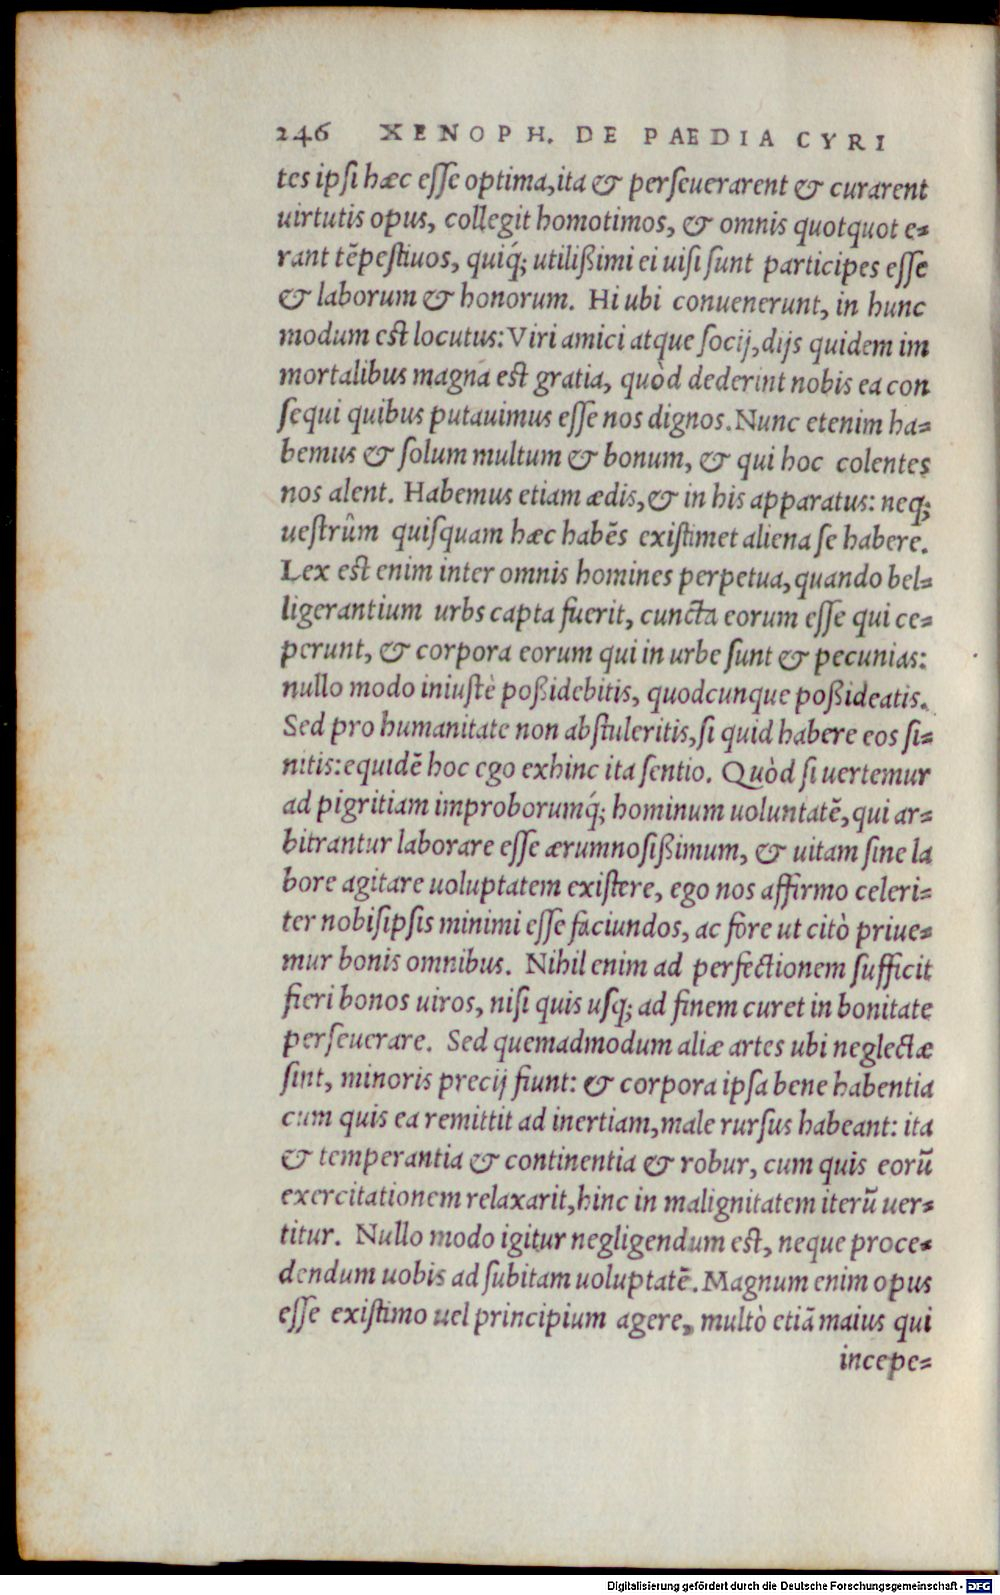 246 XENOPH. DE PAEDIA CYRI
tes ipsi hæc esse optima, ita & perseuerarent & curarent
uirtutis opus, collegit homotimos, & omnis quotquot e=
rant tẽpestiuos, quiq́; utilißimi ei uisi sunt participes esse
& laborum & honorum. Hi ubi conuenerunt, in hunc
modum est locutus: Viri amici atque socij, dijs quidem im
mortalibus magna est gratia, quòd dederint nobis ea con
sequi quibus putauimus esse nos dignos. Nunc etenim ha=
bemus & solum multum & bonum, & qui hoc colentes
nos alent. Habemus etiam ædis, & in his apparatus: neq;
uestrûm quisquam hæc habẽs existimet aliena se habere.
Lex est enim inter omnis homines perpetua, quando bel=
ligerantium urbs capta fuerit, cuncta eorum esse qui ce=
perunt, & corpora eorum qui in urbe sunt & pecunias:
nullo modo iniustè poßidebitis, quodcunque poßideatis.
Sed pro humanitate non abstuleritis, si quid habere eos si=
nitis: equidẽ hoc ego exhinc ita sentio. Quòd si uertemur
ad pigritiam improborumq́; hominum uoluntatẽ, qui ar=
bitrantur laborare esse ærumnosißimum, & uitam sine la
bore agitare uoluptatem existere, ego nos affirmo celeri=
ter nobisipsis minimi esse faciundos, ac fore ut citò priue=
mur bonis omnibus. Nihil enim ad perfectionem sufficit
fieri bonos uiros, nisi quis usq; ad finem curet in bonitate
perseuerare. Sed quemadmodum aliæ artes ubi neglectæ
sint, minoris precij fiunt: & corpora ipsa bene habentia
cum quis ea remittit ad inertiam, male rursus habeant: ita
& temperantia & continentia & robur, cum quis eorũ
exercitationem relaxarit, hinc in malignitatem iterũ uer=
titur. Nullo modo igitur negligendum est, neque proce=
dendum uobis ad subitam uoluptatẽ. Magnum enim opus
esse existimo uel principium agere, multò etiã maius qui
incepe=
Digitalisierung gefördert durch die Deutsche Forschungsgemeinschaft - DFG